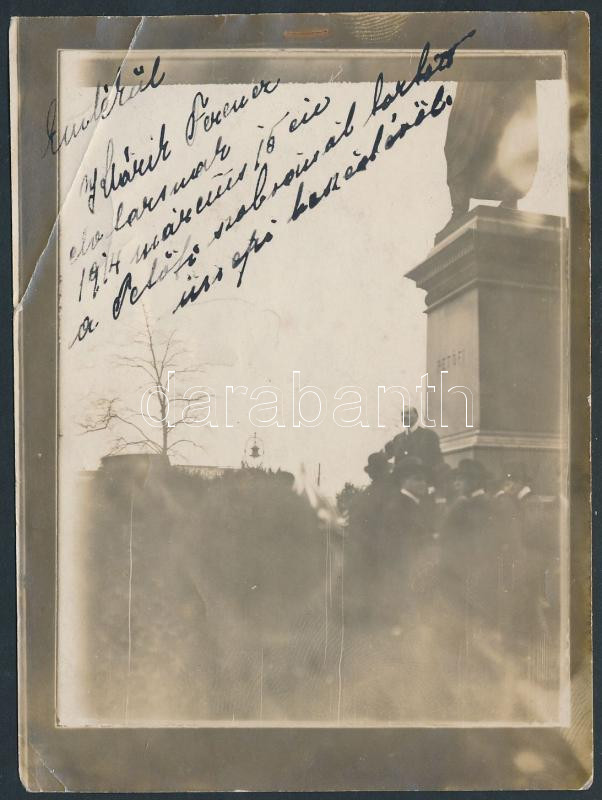 Emlékül
Márik Ferencz
elvtársnak
1914 március 15 én
a Petőfi szobránál tartott
ünnepi beszédéről.
PETŐFI
darabanth